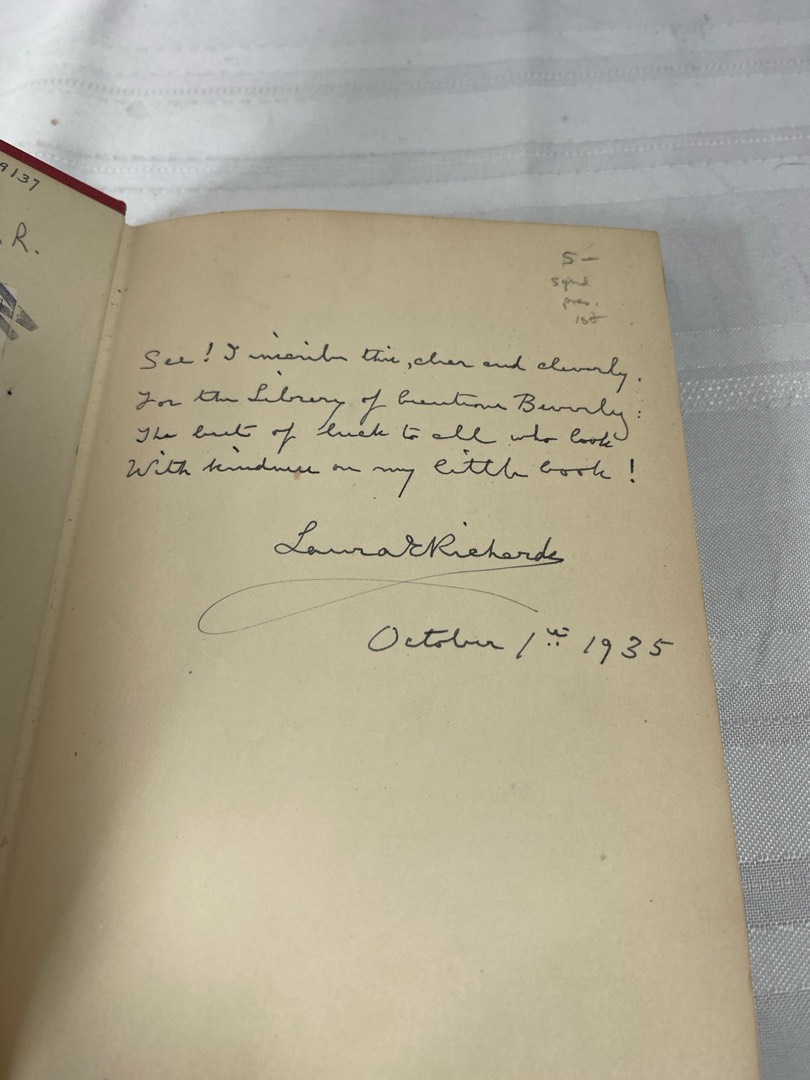 9137
R.
5-
sgnd
pres.
1st
See! I inscribe this, clear and cleverly,
For the Library of beauteous Beverly:
The best of luck to all who look
With kindness on my little book!
Laura E Richards
October 1st 1935